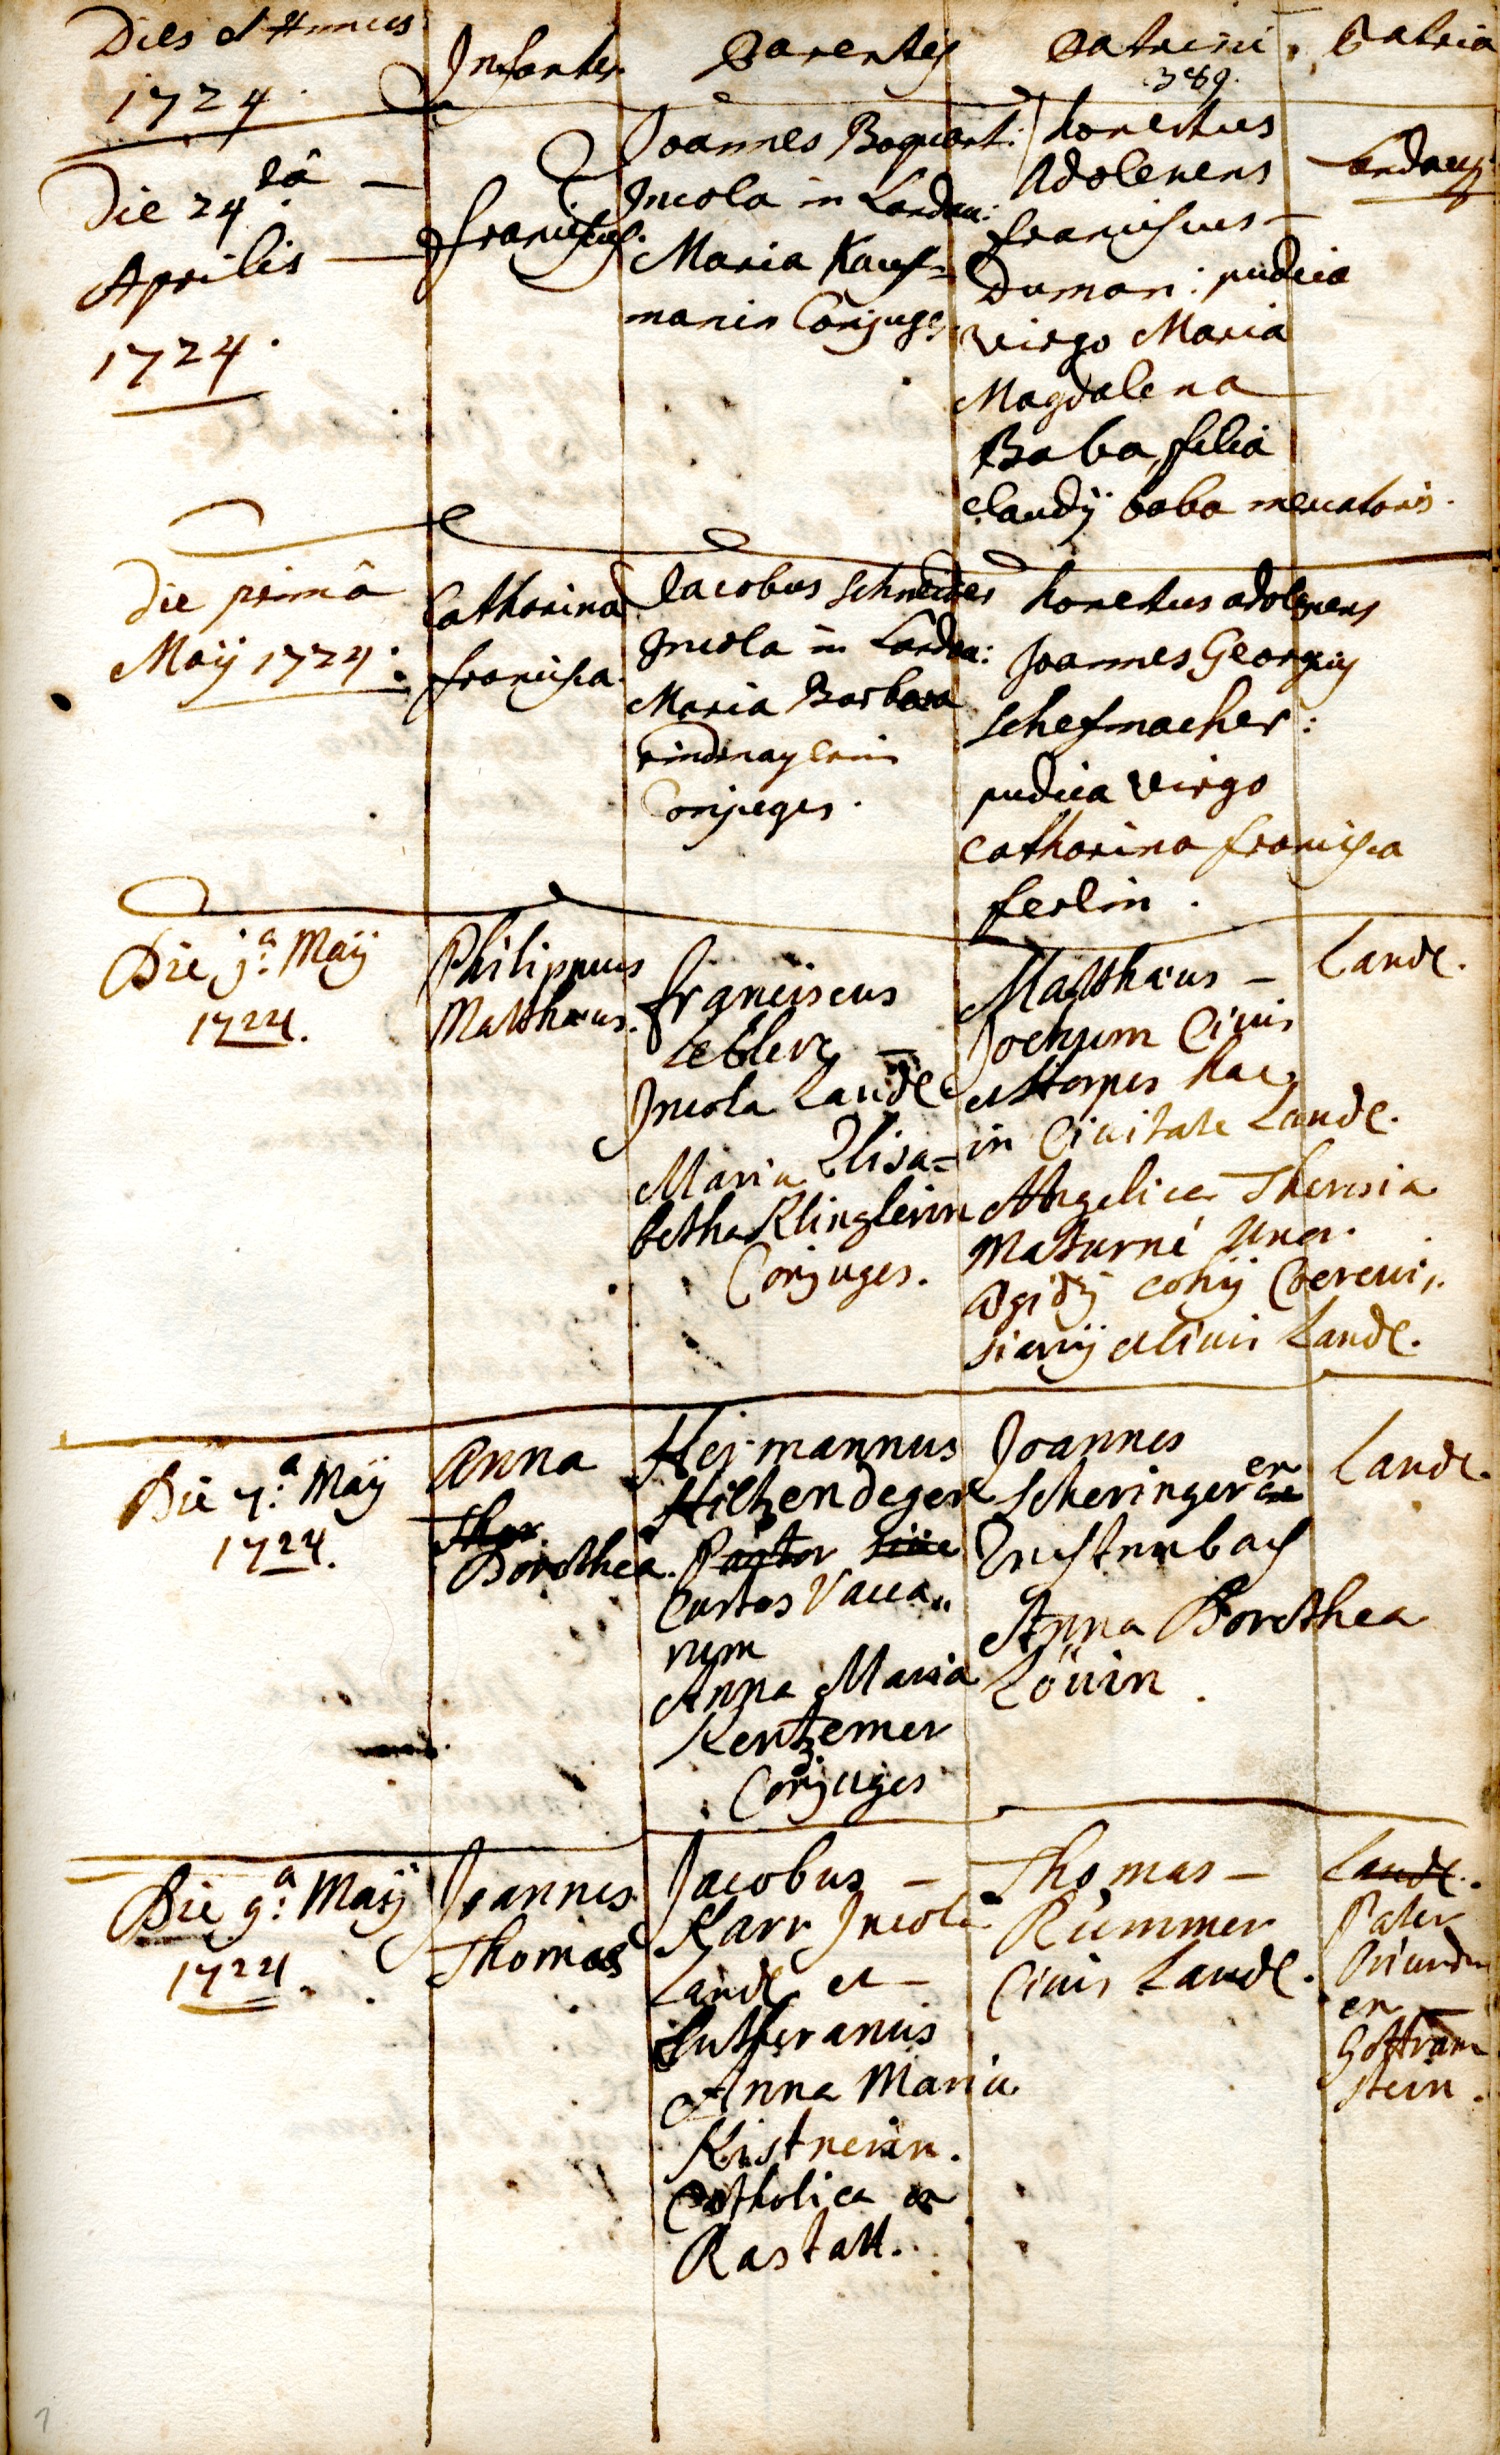 Dies et Annus
1724.
Infantes.
Parentes
Patrini.
389.
Patria
Die 24ta
Aprilis
1724.
franciscus.
Joannes Boquart:
Incola in Landau:
Maria Kauf-
manin Conjuges.
honestus
Adolescens
franciscus
Dumon: pudica
virgo Maria
Magdalena
Baba, filia
claudij baba mercatoris.
Landau
die primâ
Maÿ 1724.
Catharina
francisca.
Jacobus Schneider
Incola in Landau:
Maria Barbara
Conjuges.
honestus adolescens
Joannes Georgius
Schefmacher:
pudica virgo
catharina francisca
ferlin.
Die j.a Maÿ
1724.
Philippus
Matthæus.
franciscus
Leblerg
Incola Landæ
Maria Elisa-
betha Klinglerin
Conjuges.
Matthæus
Jochum Civis
et Hospes hac
in Civitate Landæ.
Angelica Theresia
Maturné Uxor.
Ægidÿ Cerevi,,
siarÿ et Civis Landæ.
Landæ.
Die 7.a Maÿ
1724.
Anna
Dorothea.
Hermannus
Hiltzendeger
Pastor
Custos Vacca,,
rum
Anna Maria
Kentzemer
Conjuges
Joannes
Scheringer ex
Anna Dorothea
Löuin.
Landæ.
Die 9.a Maÿ
1724.
Joannes
Thomas
Jacobus
Karr Incola
Landæ et
Lutheranus
Anna Maria
Kistnerin.
Catholica ex
Rastatt.
Thomas
Rummer
Civis Landæ.
Landæ.
Pater
Oriundus
ex
Gottram
stein.